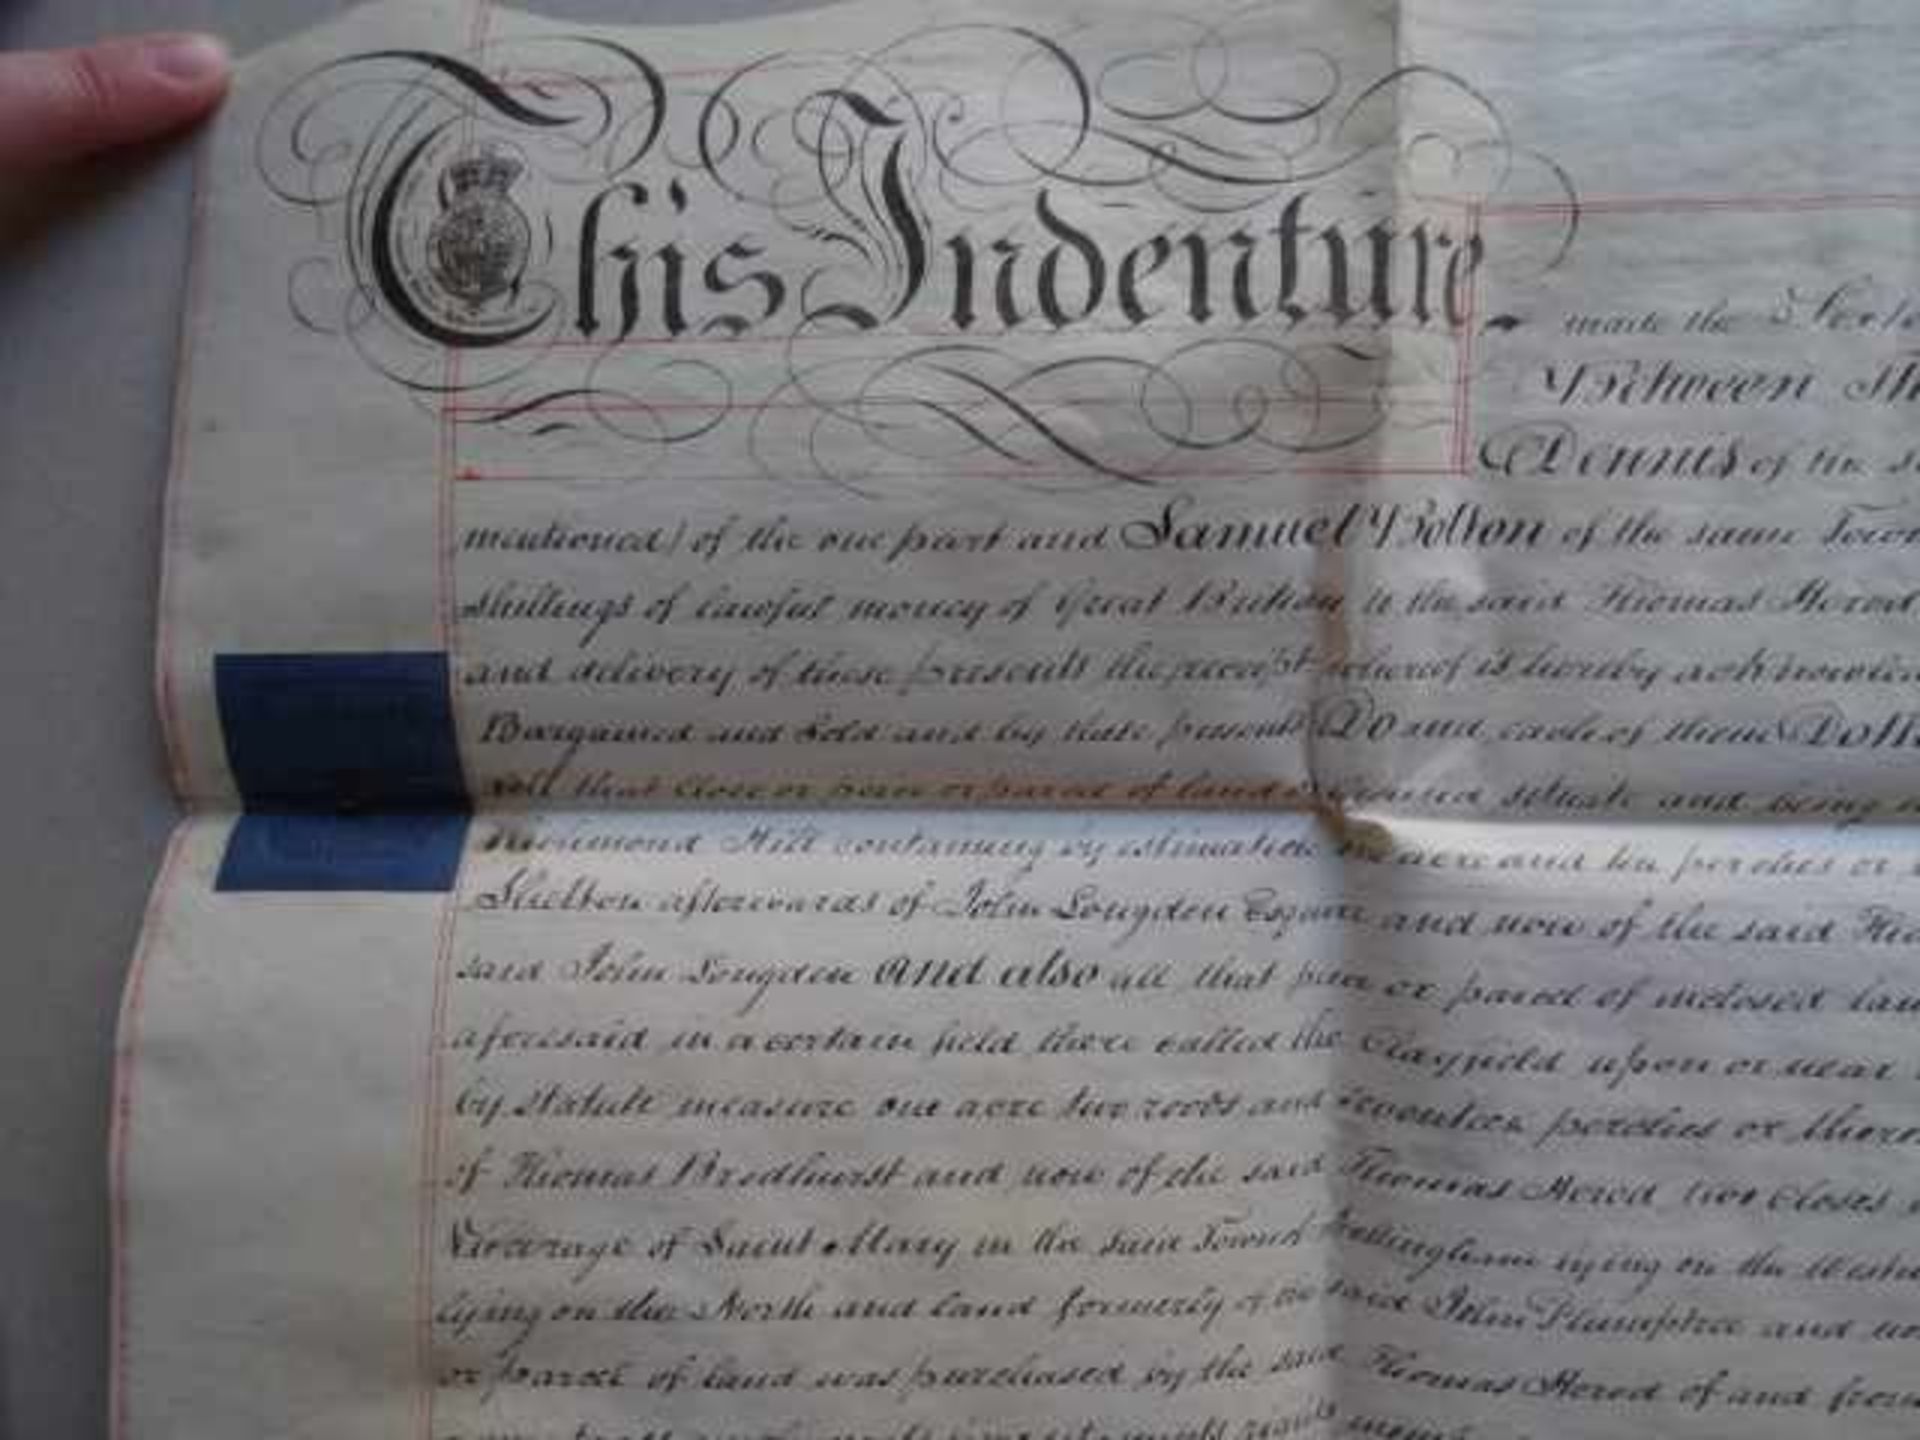 This Indenture
made the
Between
Dennis of the
mentioned) of the one part and Samuel Bolton of the same Town
shillings of lawful money of Great Britain to the said Thomas Herod
and delivery of these presents the receipt whereof is hereby acknowled
Bargained and Sold and by these presents Do and each of them Doth
All that Close or piece or parcel of land or ground situate and being
Richmond Hill containing by estimation acre and ten perches or
Shelton afterwards of John Longden Esquire and now of the said Tho
said John Longden And also all that piece or parcel of inclosed lan
aforesaid in a certain field there called the Clayfield upon or near
by statute measure one acre two roods and seventeen perches or there
of Thomas Bredhurst and now of the said Thomas Herod two closes
Vicarage of Saint Mary in the said Town of Nottingham lying on the
lying on the North and land formerly of the said John Plumptre and
or parcel of land was purchased by the said Thomas Herod of and from